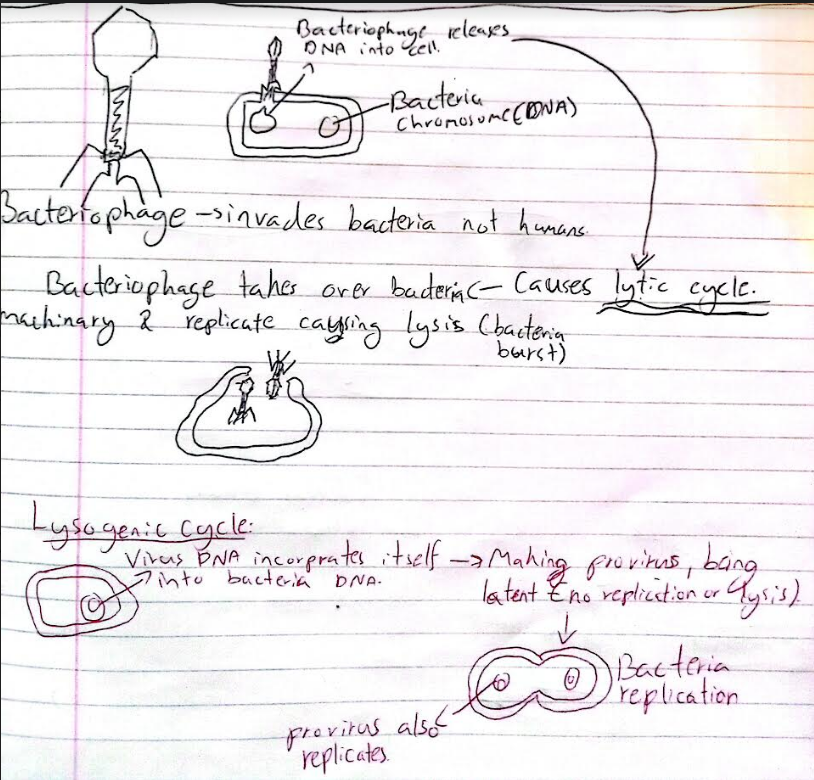 Bacteriophage releases
DNA into cell.
Bacteria
Chromosome(DNA)
Bacteriophage → invades bacteria not humans.
Bacteriophage takes over bacteria ← Causes lytic cycle.
machinary & replicate causing lysis (bacteria
burst)
Lysogenic Cycle:
Virus DNA incorprates itself → Making provirus, being
into bacteria DNA.
latent (no replication or lysis)
Bacteria
replication
provirus also
replicates.